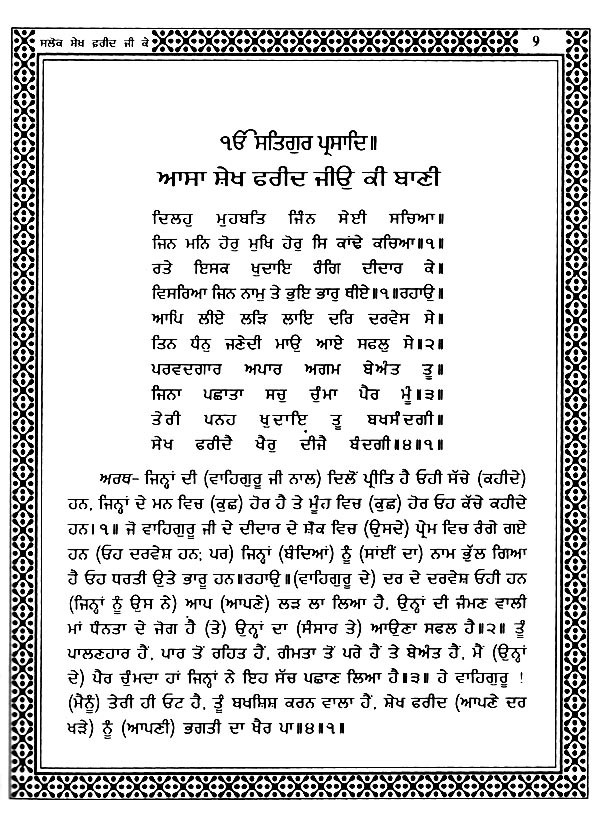 ਸਲੋਕ ਸ਼ੇਖ ਫ਼ਰੀਦ ਜੀ ਕੇ
9
ੴ ਸਤਿਗੁਰ ਪ੍ਰਸਾਦਿ॥
ਆਸਾ ਸ਼ੇਖ ਫਰੀਦ ਜੀਉ ਕੀ ਬਾਣੀ
ਦਿਲਹੁ ਮੁਹਬਤਿ ਜਿੰਨ ਸੇਈ ਸਚਿਆ॥
ਜਿਨ ਮਨਿ ਹੋਰੁ ਮੁਖਿ ਹੋਰੁ ਸਿ ਕਾਂਢੇ ਕਚਿਆ॥੧॥
ਰਤੇ ਇਸਕ ਖੁਦਾਇ ਰੰਗਿ ਦੀਦਾਰ ਕੇ॥
ਵਿਸਰਿਆ ਜਿਨ ਨਾਮੁ ਤੇ ਭੁਇ ਭਾਰੁ ਥੀਏ॥੧॥ਰਹਾਉ॥
ਆਪਿ ਲੀਏ ਲੜਿ ਲਾਇ ਦਰਿ ਦਰਵੇਸ ਸੇ॥
ਤਿਨ ਧੰਨੁ ਜਣੇਦੀ ਮਾਉ ਆਏ ਸਫਲੁ ਸੇ॥੨॥
ਪਰਵਦਗਾਰ ਅਪਾਰ ਅਗਮ ਬੇਅੰਤ ਤੂ॥
ਜਿਨਾ ਪਛਾਤਾ ਸਚੁ ਚੁੰਮਾ ਪੈਰ ਮੂੰ॥੩॥
ਤੇਰੀ ਪਨਹ ਖੁਦਾਇ ਤੂ ਬਖਸੰਦਗੀ॥
ਸੇਖ ਫਰੀਦੈ ਖੈਰੁ ਦੀਜੈ ਬੰਦਗੀ॥੪॥੧॥
ਅਰਥ- ਜਿਨ੍ਹਾਂ ਦੀ (ਵਾਹਿਗੁਰੂ ਜੀ ਨਾਲ) ਦਿਲੋਂ ਪ੍ਰੀਤਿ ਹੈ ਓਹੀ ਸੱਚੇ (ਕਹੀਦੇ)
ਹਨ, ਜਿਨ੍ਹਾਂ ਦੇ ਮਨ ਵਿਚ (ਕੁਛ) ਹੋਰ ਹੈ ਤੇ ਮੂੰਹ ਵਿਚ (ਕੁਛ) ਹੋਰ ਓਹ ਕੱਚੇ ਕਹੀਦੇ
ਹਨ। ੧॥ ਜੋ ਵਾਹਿਗੁਰੂ ਜੀ ਦੇ ਦੀਦਾਰ ਦੇ ਸ਼ੌਕ ਵਿਚ (ਉਸਦੇ) ਪ੍ਰੇਮ ਵਿਚ ਰੰਗੇ ਗਏ
ਹਨ (ਓਹ ਦਰਵੇਸ਼ ਹਨ; ਪਰ) ਜਿਨ੍ਹਾਂ (ਬੰਦਿਆਂ) ਨੂੰ (ਸਾਂਈਂ ਦਾ) ਨਾਮ ਭੁੱਲ ਗਿਆ
ਹੈ ਓਹ ਧਰਤੀ ਉਤੇ ਭਾਰੂ ਹਨ॥ਰਹਾਉ॥(ਵਾਹਿਗੁਰੂ ਦੇ) ਦਰ ਦੇ ਦਰਵੇਸ਼ ਓਹੀ ਹਨ
(ਜਿਨ੍ਹਾਂ ਨੂੰ ਉਸ ਨੇ) ਆਪ (ਆਪਣੇ) ਲੜ ਲਾ ਲਿਆ ਹੈ, ਉਨ੍ਹਾਂ ਦੀ ਜੰਮਣ ਵਾਲੀ
ਮਾਂ ਧੰਨਤਾ ਦੇ ਜੋਗ ਹੈ (ਤੇ) ਉਨ੍ਹਾਂ ਦਾ (ਸੰਸਾਰ ਤੇ) ਆਉਣਾ ਸਫਲ ਹੈ॥੨॥ ਤੂੰ
ਪਾਲਣਹਾਰ ਹੈਂ, ਪਾਰ ਤੋਂ ਰਹਿਤ ਹੈਂ, ਗੰਮਤਾ ਤੋਂ ਪਰੇ ਹੈਂ ਤੇ ਬੇਅੰਤ ਹੈਂ, ਮੈਂ (ਉਨ੍ਹਾਂ
ਦੇ) ਪੈਰ ਚੁੰਮਦਾ ਹਾਂ ਜਿਨ੍ਹਾਂ ਨੇ ਇਹ ਸੱਚ ਪਛਾਣ ਲਿਆ ਹੈ॥੩॥ ਹੇ ਵਾਹਿਗੁਰੂ !
(ਮੈਨੂੰ) ਤੇਰੀ ਹੀ ਓਟ ਹੈ, ਤੂੰ ਬਖਸ਼ਿਸ਼ ਕਰਨ ਵਾਲਾ ਹੈਂ, ਸ਼ੇਖ ਫਰੀਦ (ਆਪਣੇ ਦਰ
ਖੜੇ) ਨੂੰ (ਆਪਣੀ) ਭਗਤੀ ਦਾ ਖੈਰ ਪਾ॥੪॥੧॥